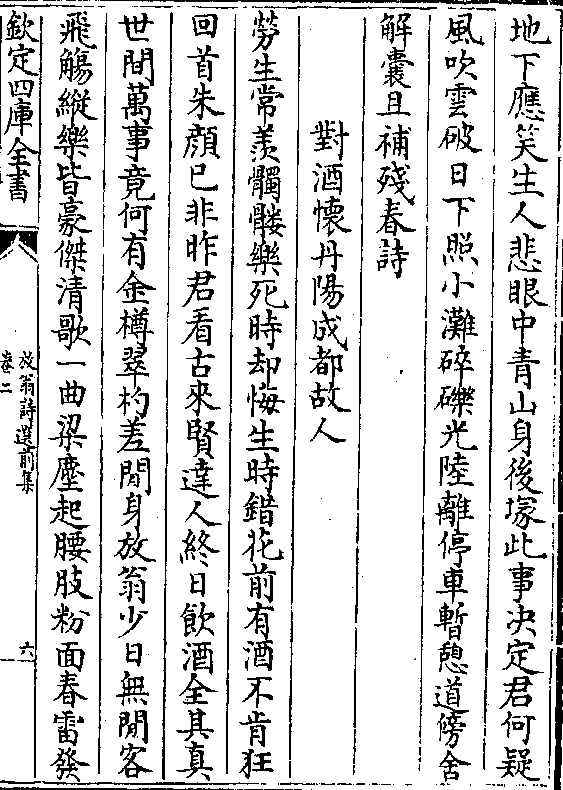 地下應笑生人悲眼中青山身後塜此事決定君何疑
風吹雲破日下照小灘碎礫光陸離停車暫憩道傍舍
解囊且補殘春詩
對酒懷丹陽成都故人
勞生常羨髑髏樂死時却悔生時錯花前有酒不肯狂
回首朱顔已非昨君看古來賢達人終日飲酒全其真
世間萬事竟何有金樽翠杓差閒身放翁少日無閒客
飛觴縱樂皆豪傑清歌一曲梁塵起腰肢粉面春雷發
欽定四庫全書
放翁詩選前集
卷二
六